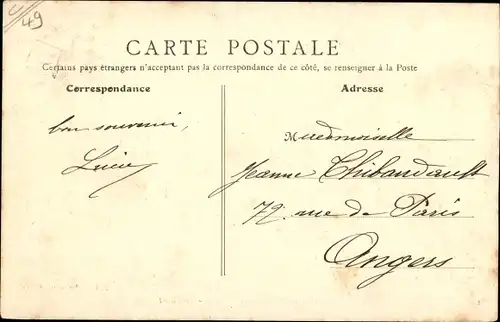 49
CARTE POSTALE
Certains pays étrangers n'acceptant pas la correspondance de ce côté, se renseigner à la Poste
Correspondance
bon souvenir,
Lucie
Adresse
Mademoiselle
Jeanne Thibaudault
72 rue de Paris
Angers